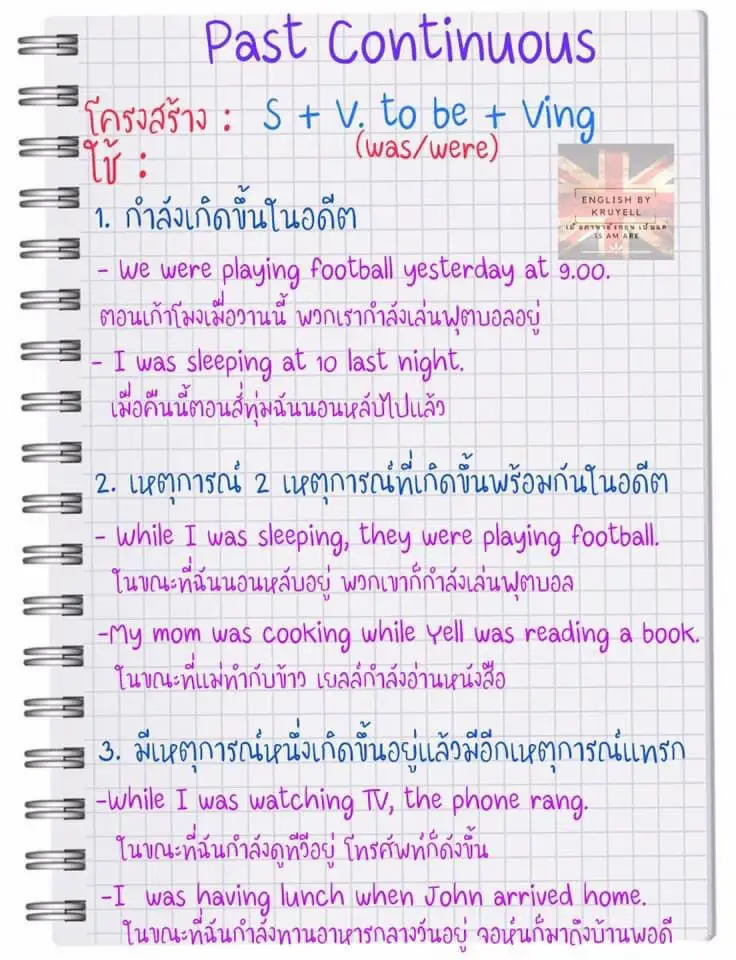 Past Continuous
โครงสร้าง : S + V. to be + Ving
(was/were)
ใช้ :
ENGLISH BY
KRUYELL
IS AM ARE
1. กำลังเกิดขึ้นในอดีต
- We were playing football yesterday at 9.00.
ตอนเก้าโมงเมื่อวานนี้ พวกเรากำลังเล่นฟุตบอลอยู่
- I was sleeping at 10 last night.
เมื่อคืนนี้ตอนสี่ทุ่มฉันนอนหลับไปแล้ว
2. เหตุการณ์ 2 เหตุการณ์ที่เกิดขึ้นพร้อมกันในอดีต
- While I was sleeping, they were playing football.
ในขณะที่ฉันนอนหลับอยู่ พวกเขาก็กำลังเล่นฟุตบอล
-My mom was cooking while Yell was reading a book.
ในขณะที่แม่ทำกับข้าว เยลล์กำลังอ่านหนังสือ
3. มีเหตุการณ์หนึ่งเกิดขึ้นอยู่แล้วมีอีกเหตุการณ์แทรก
-While I was watching TV, the phone rang.
ในขณะที่ฉันกำลังดูทีวีอยู่ โทรศัพท์ก็ดังขึ้น
-I was having lunch when John arrived home.
ในขณะที่ฉันกำลังทานอาหารกลางวันอยู่ จอห์นก็มาถึงบ้านพอดี